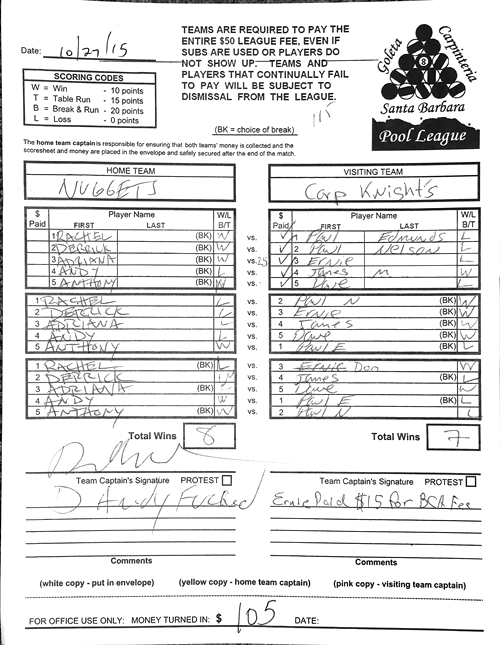 TEAMS ARE REQUIRED TO PAY THE
ENTIRE $50 LEAGUE FEE, EVEN IF
SUBS ARE USED OR PLAYERS DO
NOT SHOW UP. TEAMS AND
PLAYERS THAT CONTINUALLY FAIL
TO PAY WILL BE SUBJECT TO
DISMISSAL FROM THE LEAGUE.
Date: 10/27/15
SCORING CODES
W = Win - 10 points
T = Table Run - 15 points
B = Break & Run - 20 points
L = Loss - 0 points
(BK = choice of break)
115
Goleta Carpinteria
8
Santa Barbara
Pool League
The home team captain is responsible for ensuring that both teams' money is collected and the
scoresheet and money are placed in the envelope and safely secured after the end of the match.
HOME TEAM VISITING TEAM
NUGGETS Carp Knight's
$ Paid Player Name FIRST LAST W/L B/T $ Paid Player Name FIRST LAST W/L B/T
1 RACHEL (BK) W vs. ✓ 1 Paul Edmunds L
2 DERRICK (BK) W vs. ✓ 2 Paul Nelson L
3 ADRIANA (BK) W vs. ✓ 3 Ernie L
4 ANDY (BK) L vs. ✓ 4 James M W
5 ANTHONY (BK) W vs. ✓ 5 Dave L
1 RACHEL L vs. 2 Paul N (BK) W
2 DERRICK L vs. 3 Ernie (BK) W
3 ADRIANA L vs. 4 James (BK) W
4 ANDY L vs. 5 Dave (BK) W
5 ANTHONY W vs. 1 Paul E (BK) L
1 RACHEL (BK) L vs. 3 Ernie Don W
2 DERRICK vs. 4 James L
3 ADRIANA (BK) vs. 5 Dave W
4 ANDY W vs. 1 Paul E (BK) L
5 ANTHONY W vs. 2 Paul N (BK) L
Total Wins 8 Total Wins 7
Team Captain's Signature PROTEST Team Captain's Signature PROTEST
Andy Fucked Ernie Paid $15 For BCA Fee
Comments Comments
(white copy - put in envelope) (yellow copy - home team captain) (pink copy - visiting team captain)
FOR OFFICE USE ONLY: MONEY TURNED IN: $ 105 DATE: